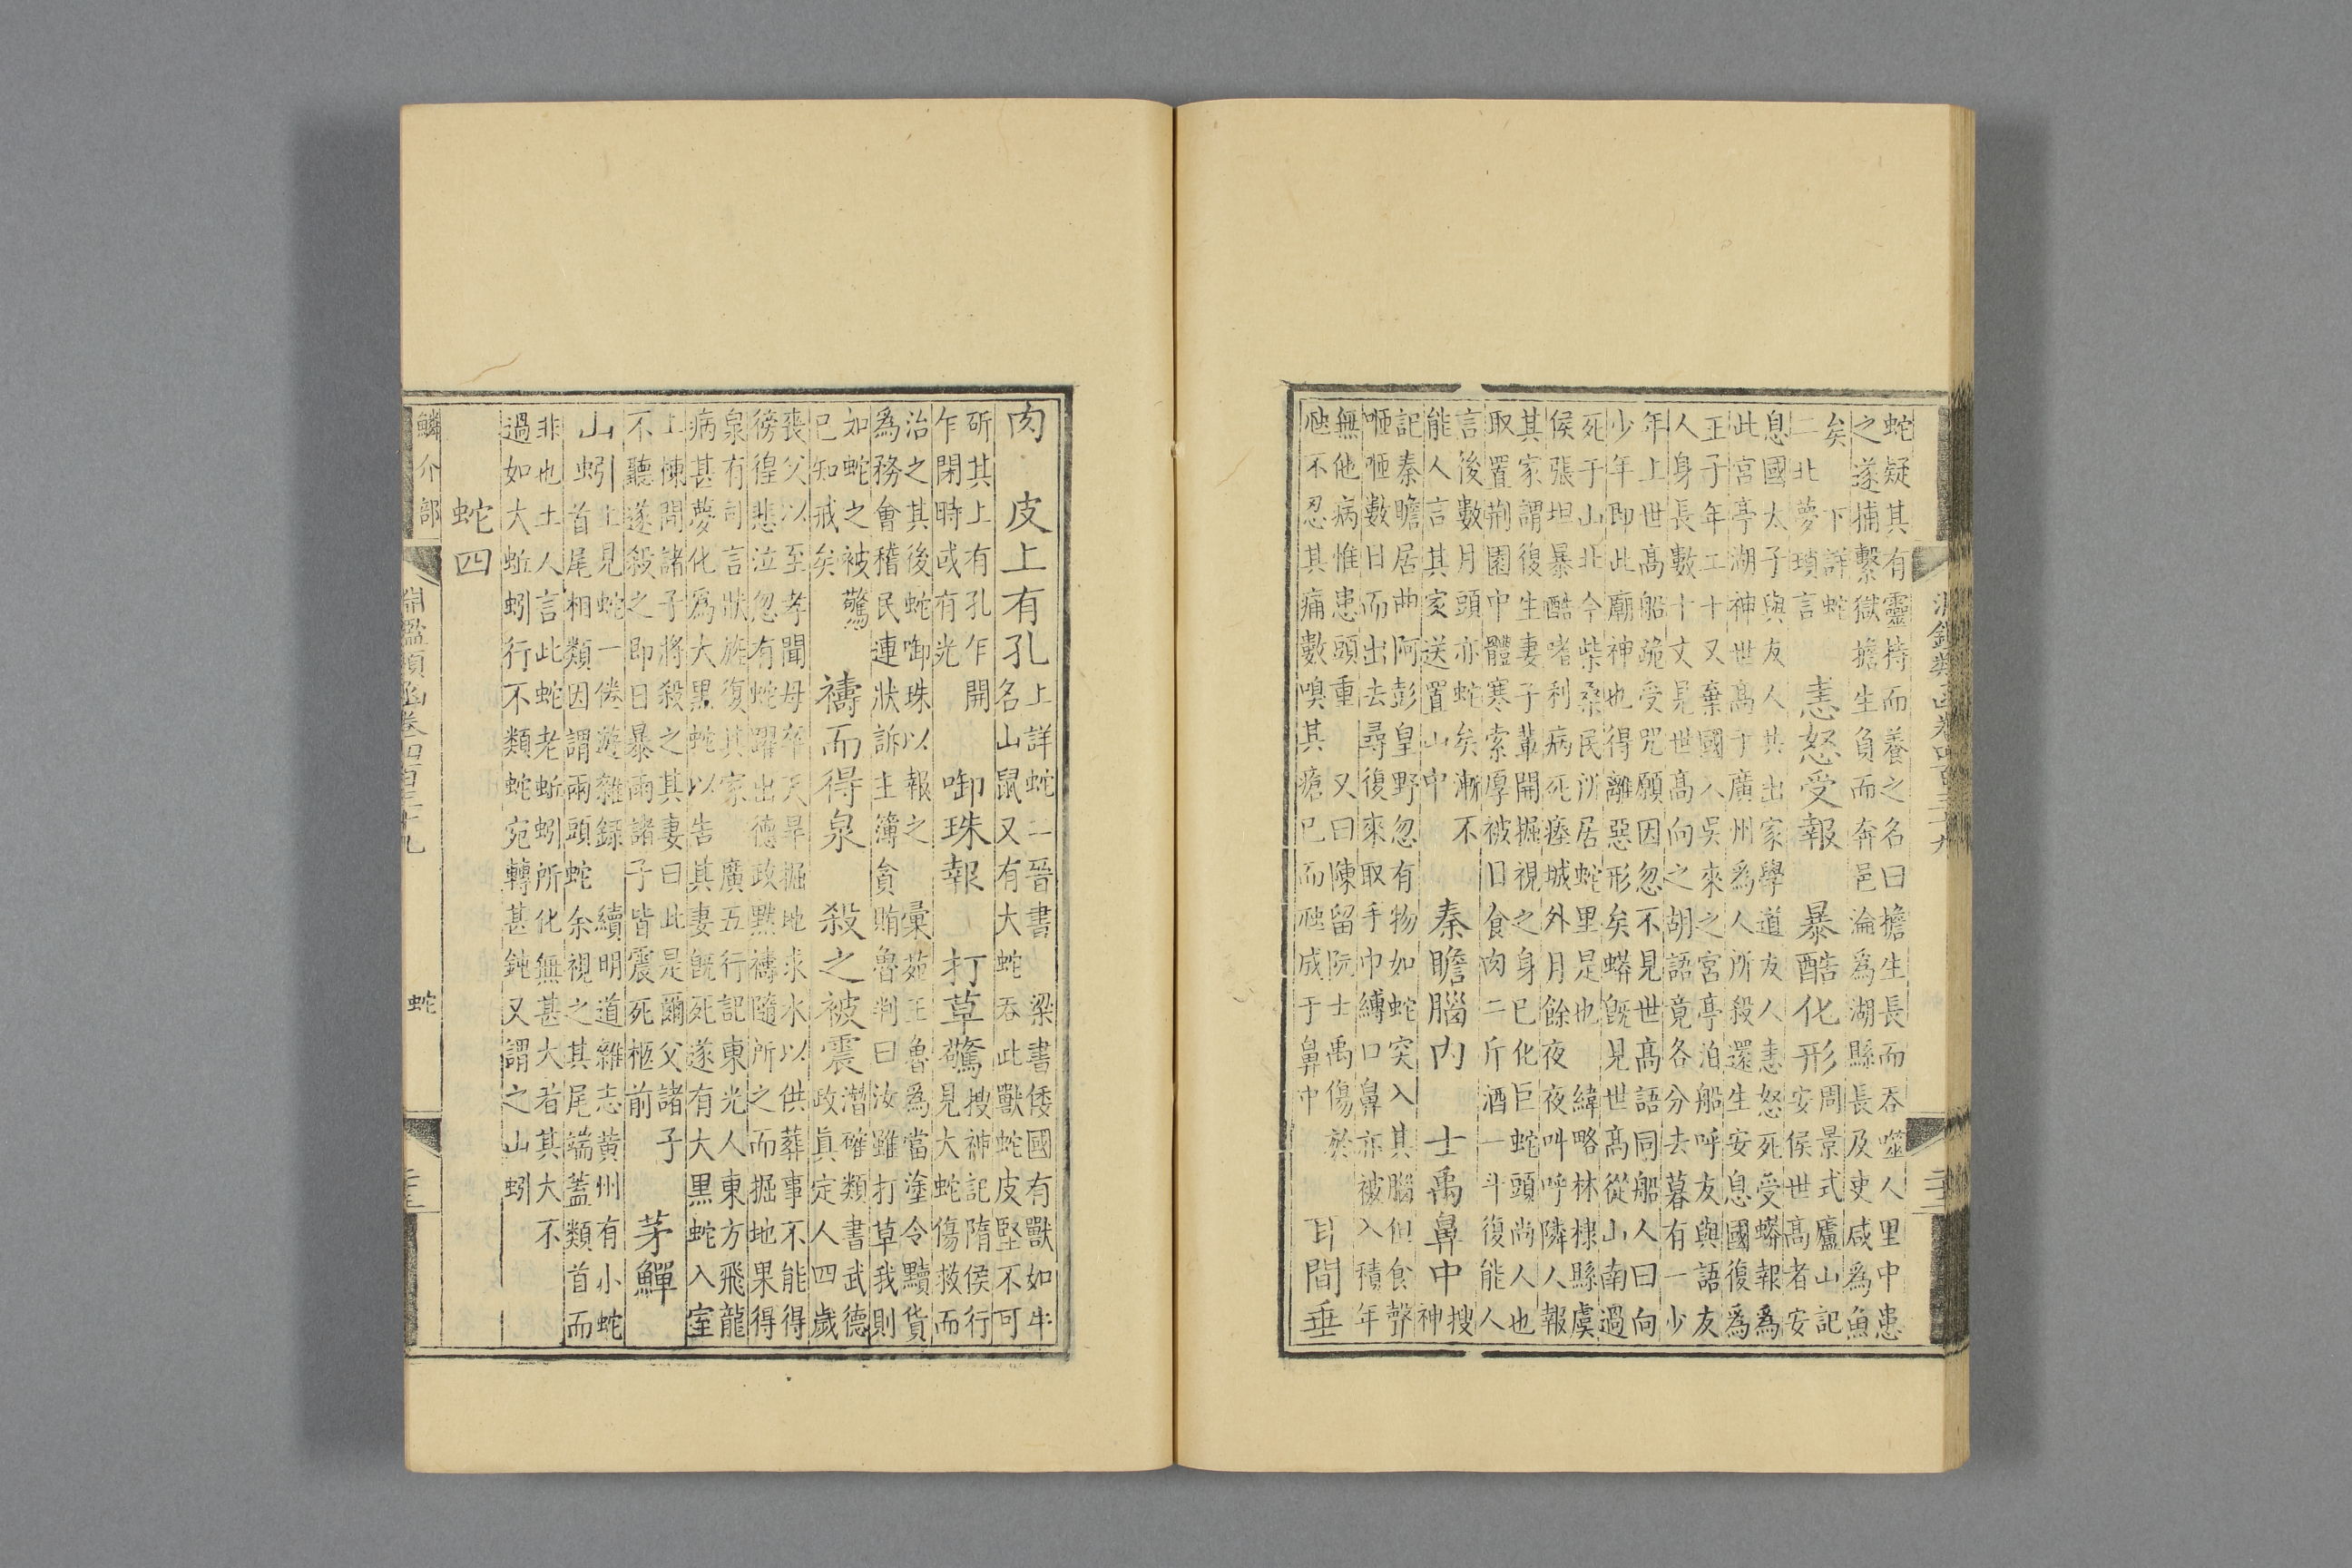 淵鑑類函卷四百三十九
蛇疑其有靈持而養之名曰擔生長而吞噬人里中患
之遂捕繫獄擔生負而奔邑淪為湖縣長及吏咸為魚
矣　下詳蛇
二北夢瑣言
恚怒受報　暴酷化形
周景式廬山記
安侯世高者安
息國太子與友人共出家學道友人恚怒死受蟒報為
此宮亭湖神世高于廣州為人所殺還生安息國復為
王子年二十又棄國入吳來之宮亭泊船呼友與語友
人身長數十丈見世高向之胡語竟各分去暮有一少
年上世高船跪受咒願因忽不見世高語同船人曰向
少年即此廟神也得離惡形矣蟒旣見世高從山南過
死于山北今柴桑民所居蛇里是也　緯略林棣縣虞
侯張坦暴酷嗜利病死瘞城外月餘夜夜叫呼隣人報
其家謂復生妻子輩開掘視之身已化巨蛇頭尚人也
取置荆園中體寒索厚被日食肉二斤酒一斗復能人
言後數月頭亦蛇矣漸不
能人言其家送置山中
秦瞻腦内　士禹鼻中
搜
神
記秦瞻居曲阿彭皇野忽有物如蛇突入其腦但食聲
咂咂數日而出去尋復來取手巾縛口鼻亦被入積年
無他病惟患頭重　又曰陳留阮士禹傷於
虺不忍其痛數嗅其瘡已而虺成于鼻中
耳間垂
肉　皮上有孔
上詳蛇二晉書　梁書倭國有獸如牛
名山鼠又有大蛇吞此獸蛇皮堅不可
斫其上有孔乍開
乍閉時或有光
啣珠報　打草驚
搜神記隋侯行
見大蛇傷救而
治之其後蛇啣珠以報之　彙苑王魯為當塗令黷貨
為務會稽民連狀訴主簿貪賄魯判曰汝雖打草我則
如蛇之被驚
已知戒矣
禱而得泉　殺之被震
潛確類書武德
政眞定人四歲
喪父以至孝聞母卒天旱掘地求水以供葬事不能得
徬徨悲泣忽有蛇躍出德政默禱隨所之而掘地果得
泉有司言狀旌復其家　廣五行記東光人東方飛龍
病甚夢化為大黑蛇以告其妻旣死遂有大黑蛇入室
上悚問諸子將殺之其妻曰此是爾父諸子
不聽遂殺之即日暴雨諸子皆震死柩前
茅鱓
山蚓
上見蛇一倦遊雜録　續明道雜志黃州有小蛇
首尾相類因謂兩頭蛇　余視之其尾端蓋類首而
非也土人言此蛇老蚯蚓所化無甚大者其大不
過如大蚯蚓行不類蛇宛轉甚鈍又謂之山蚓
蛇四
鱗介部
淵鑑類函卷四百三十九
蛇